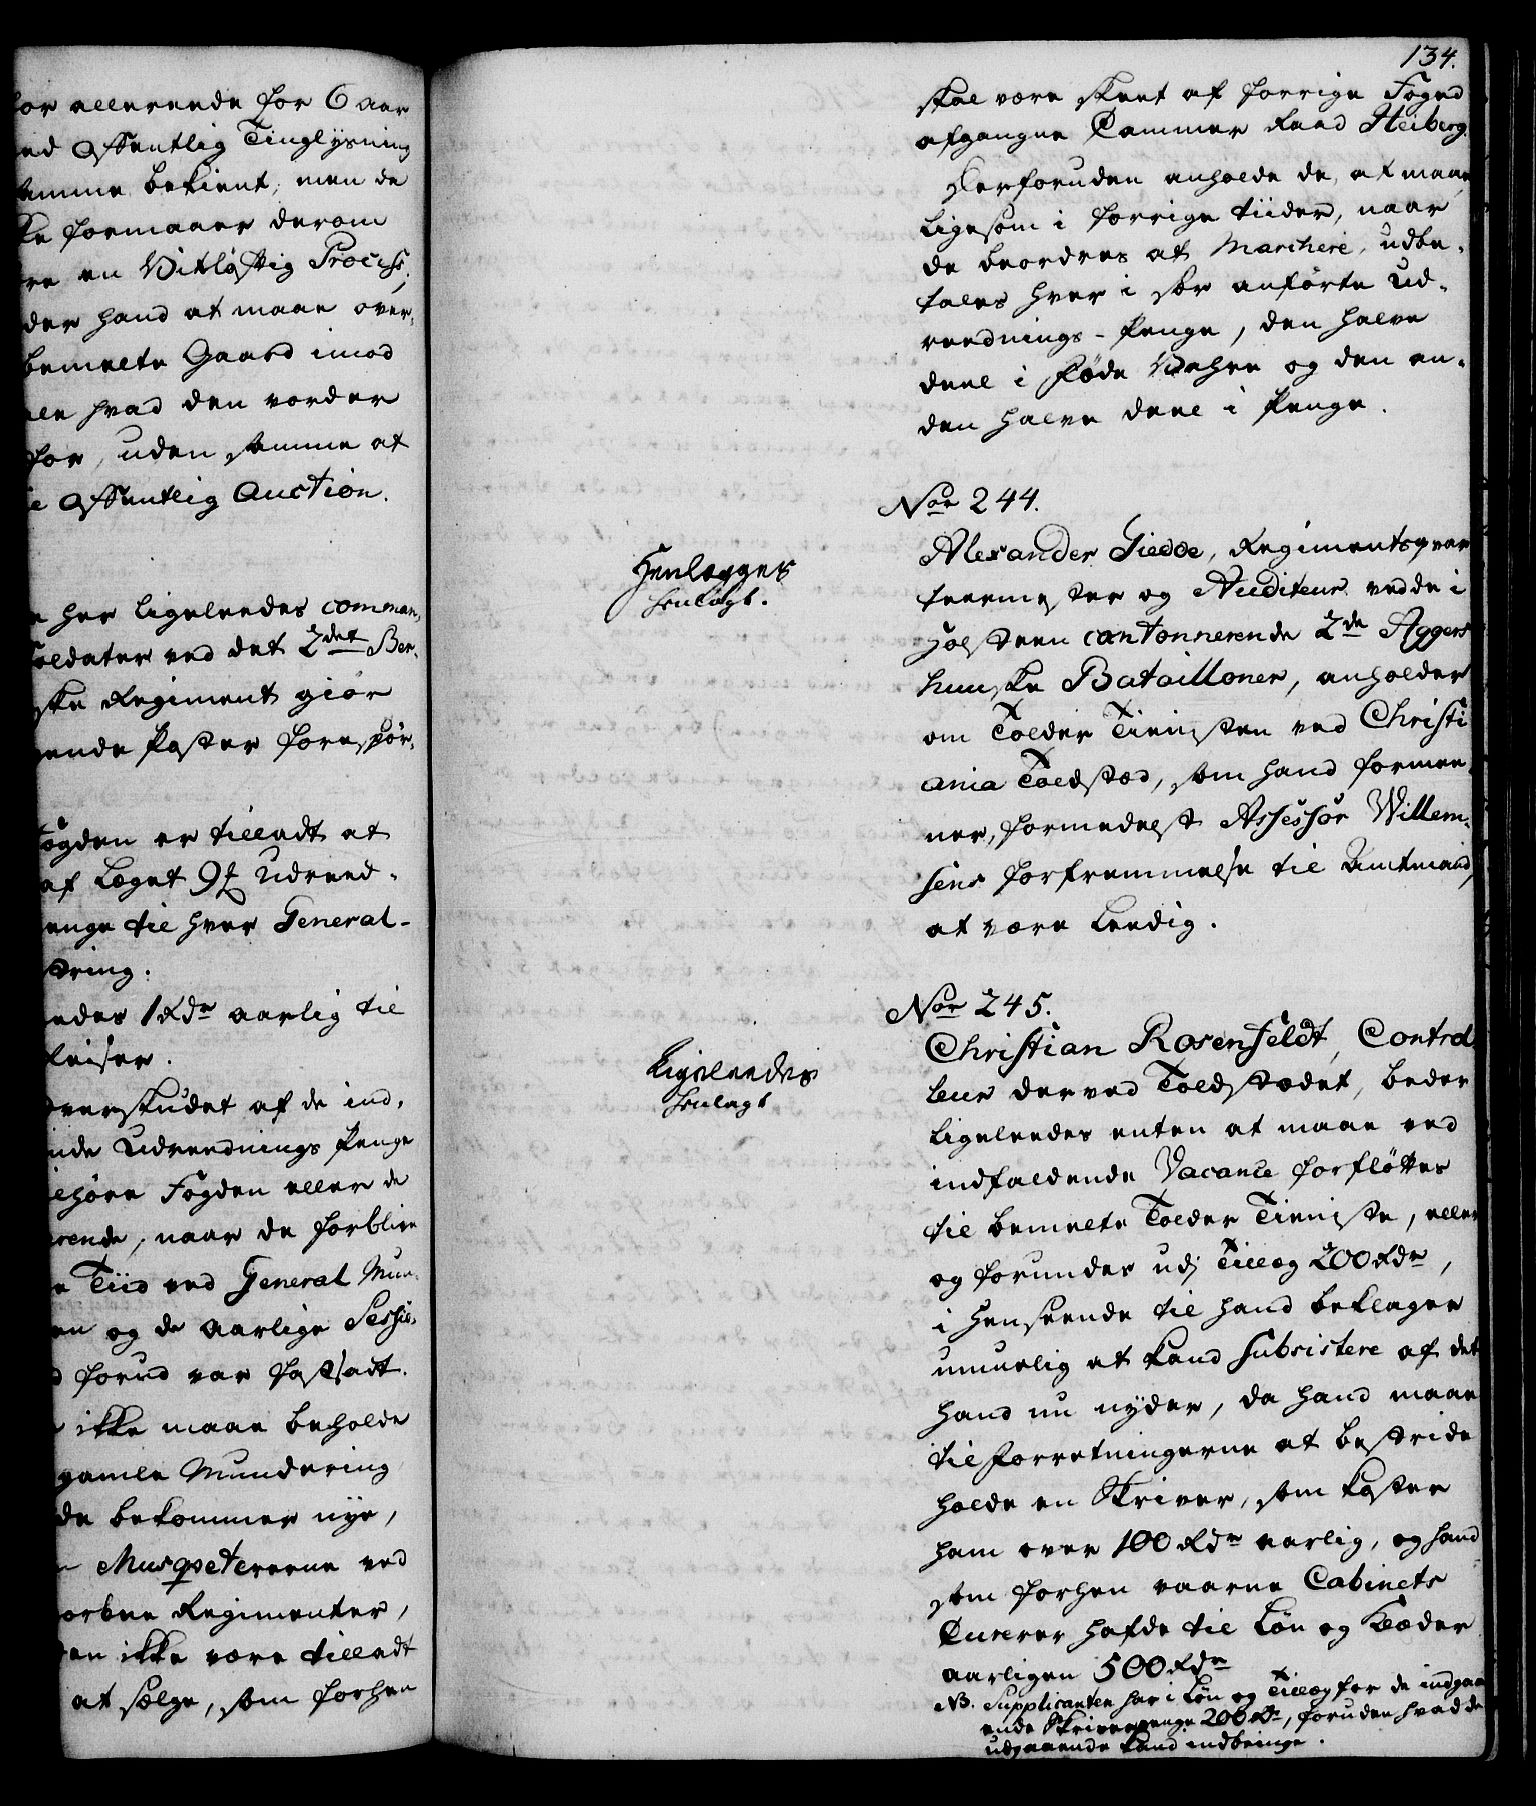 for allereede for 6 aar
ed offentlig Tinglysning
amme bekient, men de
ke formaaer derom
re en Vitløftig Process,
der hand at maae over-
bemelte Gaard imod
ale hvad den vorder
for, uden samme at
e offentlig Auction.
e her ligeleedes comman-
oldater ved det 2det Ber-
ske Regiment giør
ende Poster forespør-
ogden er tilladt at
af Læget 9 Udreed-
enge til hver General-
string.
edes 1 Rdr aarlig til
Reiser.
verskudet af de ind-
nde Udreednings Penge
lhøre Fogden eller de
rende, naar de forblive
e Tiid ved General Mun-
en og de aarlige Sessio-
d forud var fastsadt.
ikke maae beholde
gamle Mundering
de bekommer nye,
Musqvetererne ved
orbne Regimenter,
en ikke være tilladt
at sælge, som forhen
134.
skal være skeet af forrige Foged
afgangne Cammer Raad Heiberg.
Herforuden anholde de, at maae
ligesom i forrige tiider, naar
de beordres at Marchere, udbe-
tales hver i sær anførte Ud-
reednings-Penge, den halve
deel i Føde Vahre og den an-
den halve deel i Penge.
Nor 244.
Henlegges
henlagt.
Alexander Giedde, Regimentsqvar
teermester og Auditeur ved de i
Holsteen cantonnerende 2de Aggers
huuske Batailloner, anholder
om Tolder Tienisten ved Christi
ania Toldsted, som hand formee-
ner, formedelst Assessor Willem-
sens forfremmelse til Amtmand,
at være Leedig.
Nor 245.
Ligeleedes
henlagt
Christian Rosenfeldt, Control-
leur derved Toldstædet, beder
ligeleedes enten at maae ved
indfaldende Vacance forfløttes
til bemelte Tolder Tieniste, eller
og forundes udj Tillæg 200 Rdr,
i henseende til hand beklager
umuelig at kand subsistere af det
hand nu nyder, da hand maae
til Forretningerne at bestride
holde en Skriver, som koster
ham over 100 Rdr aarlig, og hand
som forhen vaarne Cabinets
Curerer hafde til Løn og Klæder
aarligen 500 Rdr
NB. Supplicanten har i Løn og Tillæg for de indgaa
ende Skriverpenge 200 Rdr, foruden hvad de
udgaaende kand indbringe.